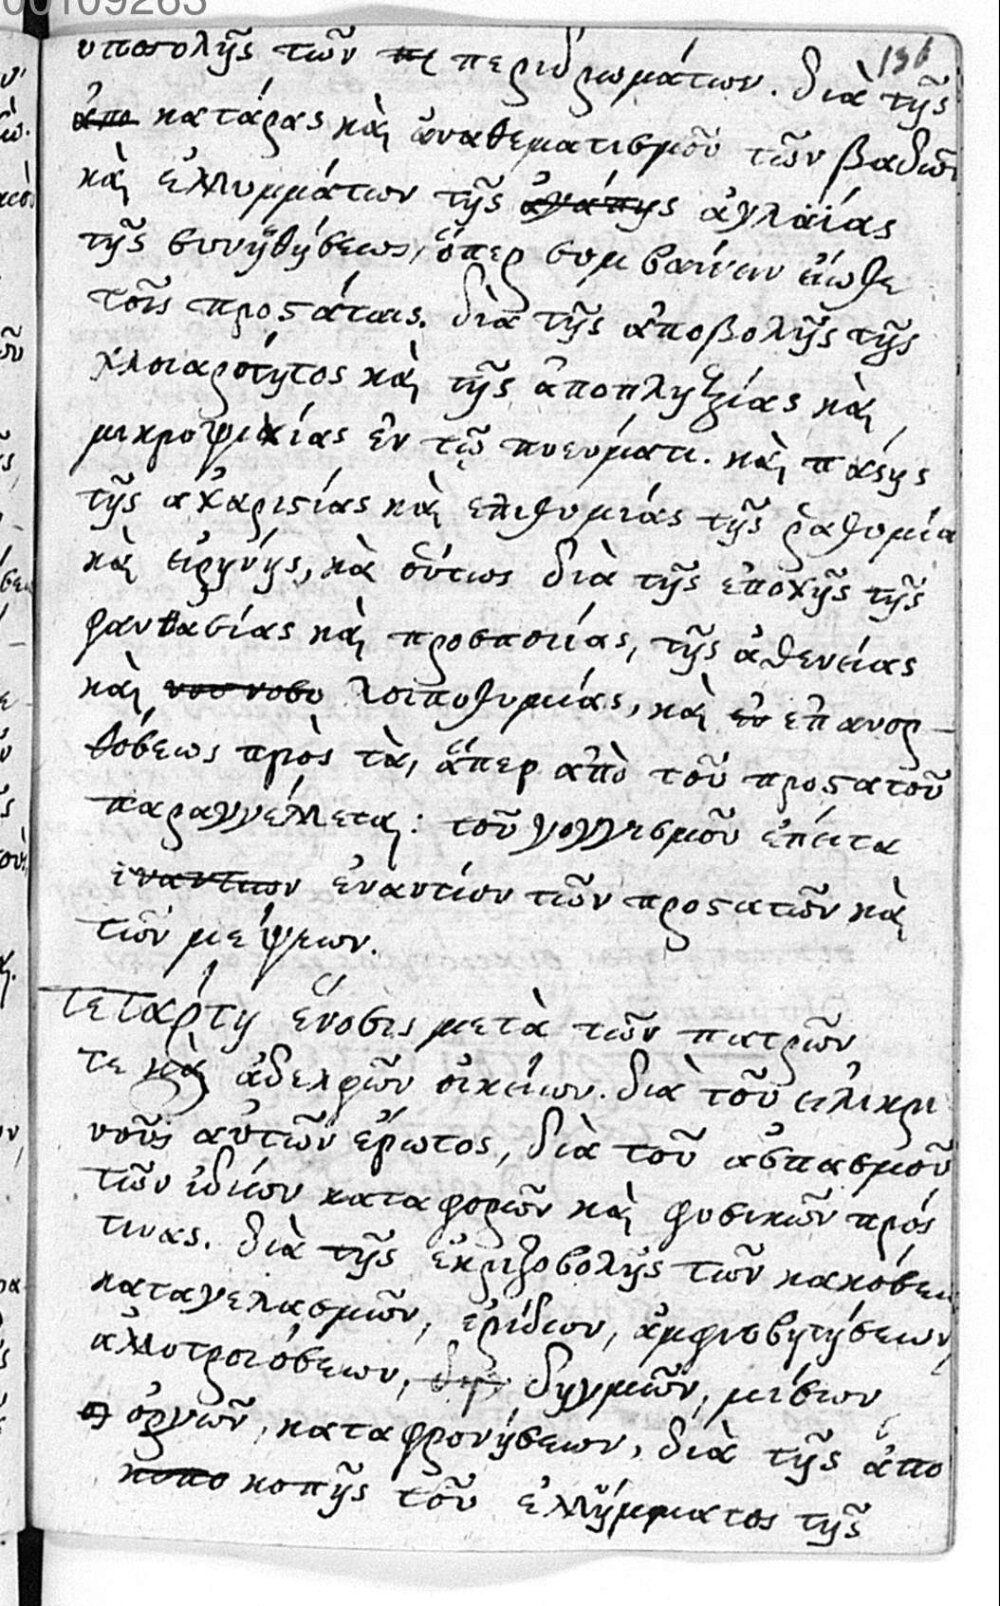 00109263
136
υποστολῆς τῶν περιδρωμάτων. διὰ τῆς
ἀπο κατάρας κὰι ἀναθεματισμοῦ τῶν
κὰι ἐλλυμμάτων τῆς ἀγάπης ἀγλαΐας
τῆς συνηθήσεως, ὅπερ συμβαίνειν εἴωθε
τοῖς προςάταις. διὰ τῆς ἀποβολῆς τῆς
χλοιαρότητος κὰι τῆς ἀποπληξίας κὰι
μικροψιχίας ἐν τῷ πνευμάτι. κὰι πάσης
τῆς ἀχαριςίας κὰι επιθυμιάς τῆς ῥαθυμία
κὰι εἰρήνης, κὰ οὕτως διὰ τῆς ἐποχῆς τῆς
φαντασίας κὰι προσπαθείας, τῆς ἀθενείας
κὰι λοιποθυμίας, κὰι ἐν ἐπανορ-
θόσεως πρὸς τὰ, ἅπερ ἀπὸ τοῦ προςατοῦ
παραγγέλλεται: τοῦ γογγισμοῦ ἐπέιτα
ἐναντιων ἐναντίον τῶν προςατῶν κὰι
τῶν μεψεων.
τετάρτη ἕνοσις μετὰ τῶν πατρῶν
τε κὰι ἀδελφῶν ὀικέιων. διὰ τοῦ ειλικρι
νοῦς αὐτῶν ἔρωτος, διὰ τοῦ ἀσπασμοῦ
τῶν ἰδίων καταφορῶν κὰι φυσικῶν πρός
τινας. διὰ τῆς ἐκριζοβολῆς τῶν κακόσεω
καταγελασμῶν, ἐρίδων, ἀμφισβητήσεων,
ἀλλοτροιόσεων, δηγμῶν, μίσεων
ὀργῶν, καταφρονήσεων, διὰ τῆς ἀπο
κοπο κοπῆς τοῦ ἐλλήμματος τῆς